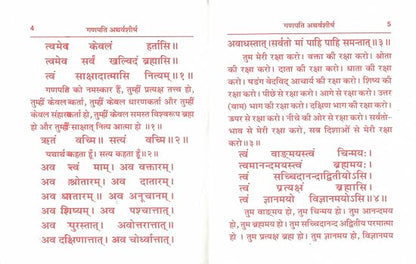 4 गणपति अथर्वशीर्ष
त्वमेव केवलं हर्तासि॥
त्वमेव सर्वं खल्विदं ब्रह्मासि॥
त्वं साक्षादात्मासि नित्यम्॥१॥
गणपति को नमस्कार हैं, तुम्हीं प्रत्यक्ष तत्त्व हो,
तुम्हीं केवल कर्ता, तुम्हीं केवल धारणकर्ता और तुम्हीं
केवल संहारकर्ता हो, तुम्हीं केवल समस्त विश्वरूप ब्रह्म
हो और तुम्हीं साक्षात् नित्य आत्मा हो ॥१॥
ऋतं वच्मि॥ सत्यं वच्मि॥२॥
यथार्थ कहता हूँ। सत्य कहता हूँ॥२॥
अव त्वं माम्। अव वक्तारम्।
अव श्रोतारम्। अव दातारम्।
अव धातारम्। अव अनूचानम्।
अव शिष्यम्। अव पश्चात्तात्।
अव पुरस्तात्। अवोत्तरात्तात्।
अव दक्षिणात्तात्। अव चोर्ध्वात्तात्।
गणपति अथर्वशीर्ष 5
अवाधस्तात्। सर्वतो मां पाहि पाहि समन्तात्॥३॥
तुम मेरी रक्षा करो। वक्ता की रक्षा करो। श्रोता
की रक्षा करो। दाता की रक्षा करो। धाता की रक्षा करो।
षडंग वेदविद् आचार्य की रक्षा करो। शिष्य की
रक्षा करो। पीछे से रक्षा करो। आगे से रक्षा करो। उत्तर
(वाम) भाग की रक्षा करो। दक्षिण भाग की रक्षा करो।
ऊपर से रक्षा करो। नीचे की ओर से रक्षा करो। सर्वतो-
भाव से मेरी रक्षा करो, सब दिशाओं से मेरी रक्षा करो
॥३॥
त्वं वाङ्मयस्त्वं चिन्मयः।
त्वमानन्दमयस्त्वं ब्रह्ममयः।
त्वं सच्चिदानन्दाद्वितीयोऽसि।
त्वं प्रत्यक्षं ब्रह्मासि।
त्वं ज्ञानमयो विज्ञानमयोऽसि॥४॥
तुम वाङ्मय हो, तुम चिन्मय हो। तुम आनन्दमय
हो, तुम ब्रह्ममय हो। तुम सच्चिदानन्द अद्वितीय परमात्मा
हो। तुम प्रत्यक्ष ब्रह्म हो। तुम ज्ञानमय हो, विज्ञानमय